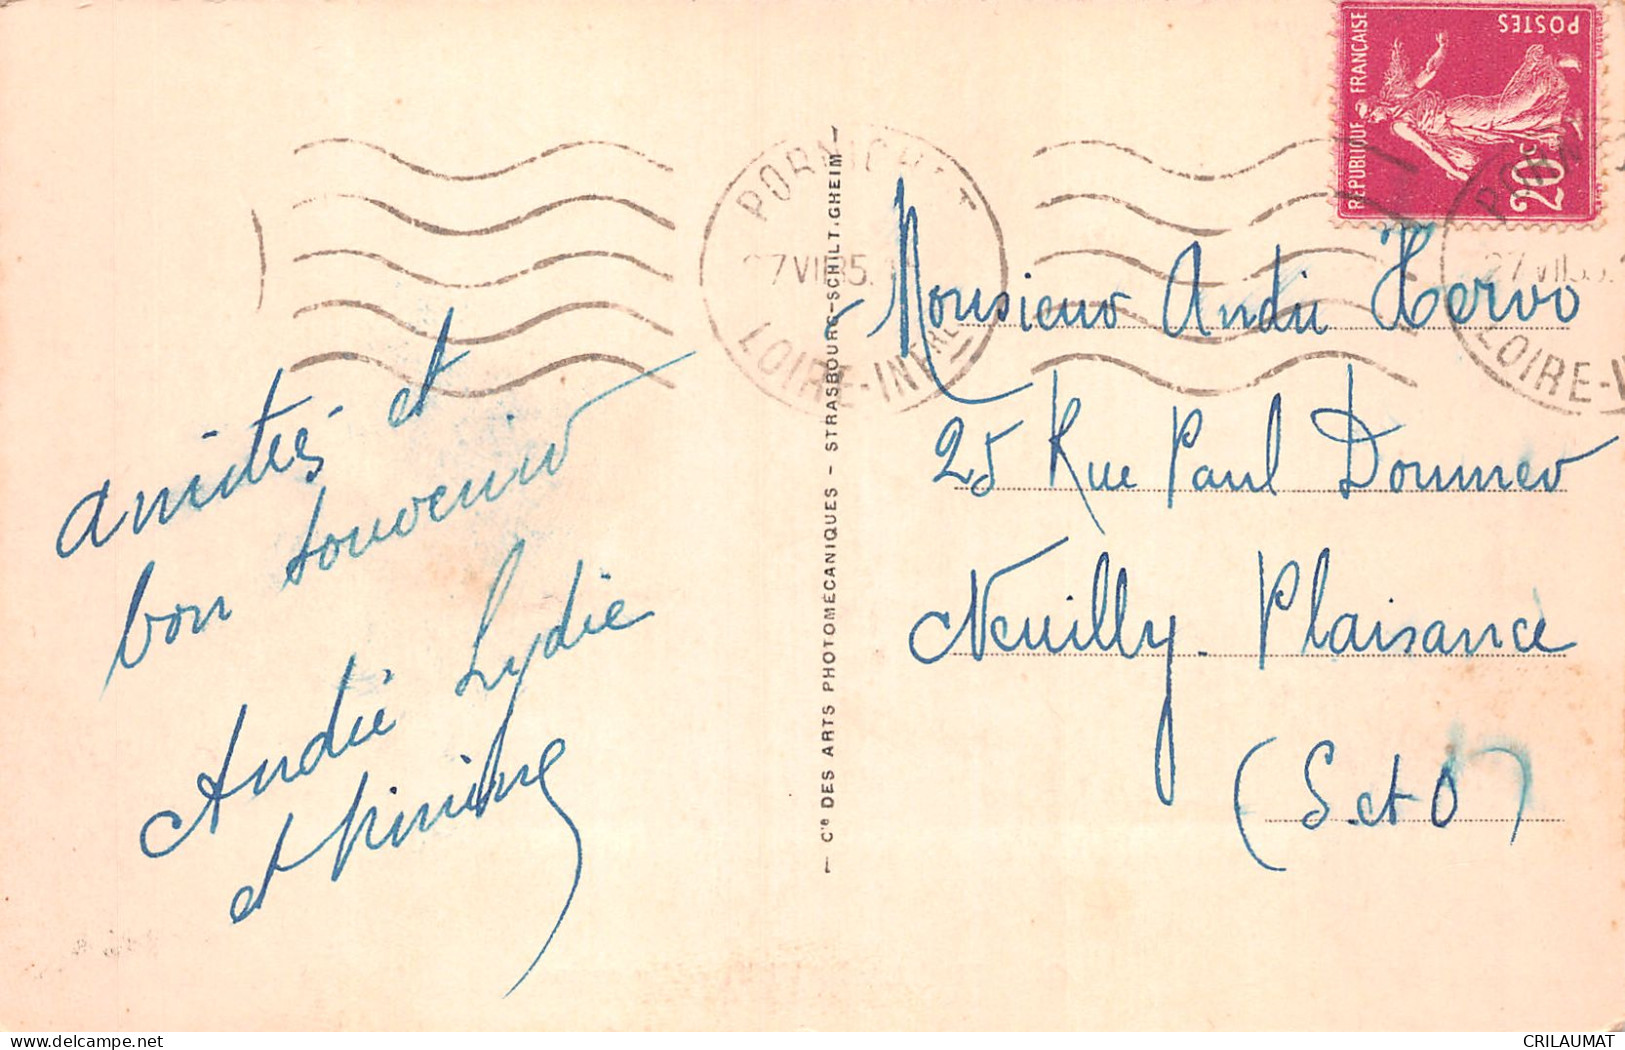 amitiés et
bon souvenir
André Lydie
et
— Cie DES ARTS PHOTOMÉCANIQUES - STRASBOURG-SCHILT.GHEIM —
PORNICHET
27 VII 35
LOIRE-INFRE
RÉPUBLIQUE FRANÇAISE
POSTES
20c
PORNI
27 VII 35
LOIRE-I
Monsieur André Hervo
25 Rue Paul Doumer
Neuilly-Plaisance
(S. et O)
delcampe.net
CRILAUMAT